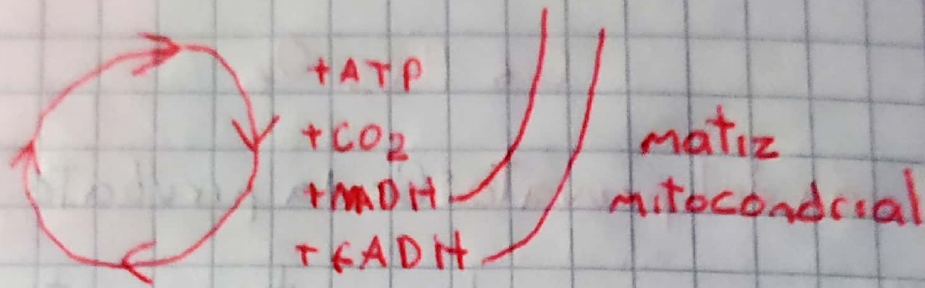 +ATP
+CO₂
+mDH
+FADH
matiz
mitocondrial